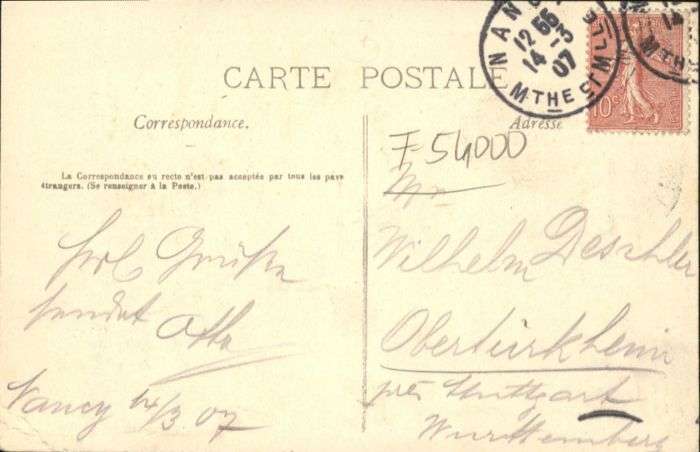 CARTE POSTALE
Correspondance.
Adresse
La Correspondance au recto n'est pas acceptée par tous les pays
étrangers. (Se renseigner à la Poste.)
NANCY
12 55
14 -3
07
MTHE ET MLLE
14
MTH
10c
F-54000
Mr
Wilhelm Deschler
Obertürkheim
près Stuttgart
Württemberg
Grüße
sendet Otto
Nancy 14/3 07